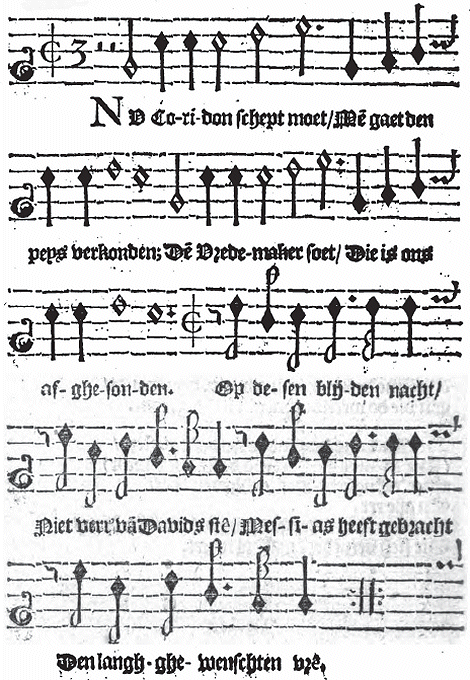 NU Co-ri-don schept moet/Mē gaet den
peys verkonden: Dē Vrede-maker soet/ Die is ons
af-ghe-son-den. Op de-sen blij-den nacht/
Niet verr' vā Davids stē/Mes-si-as heeft gebracht
Den langh-ghe-wenschten vrē.